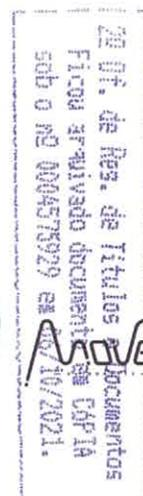 2º Of. de Res. de Títulos e Documentos
Ficou arquivado document em CÓPIA
sob o nº 000457929 em /10/2021.